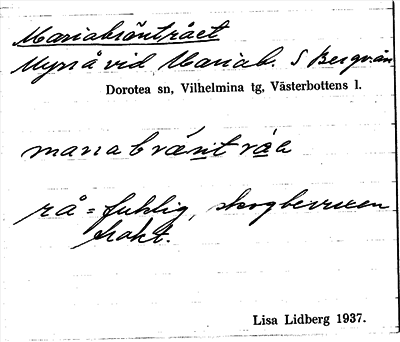 Mariabräntrået
Myrrå vid Mariab. S Bergvan
Dorotea sn, Vilhelmina tg, Västerbottens l.
mariabräntråe
rå = fuktig, skogbevuxen
trakt.
Lisa Lidberg 1937.